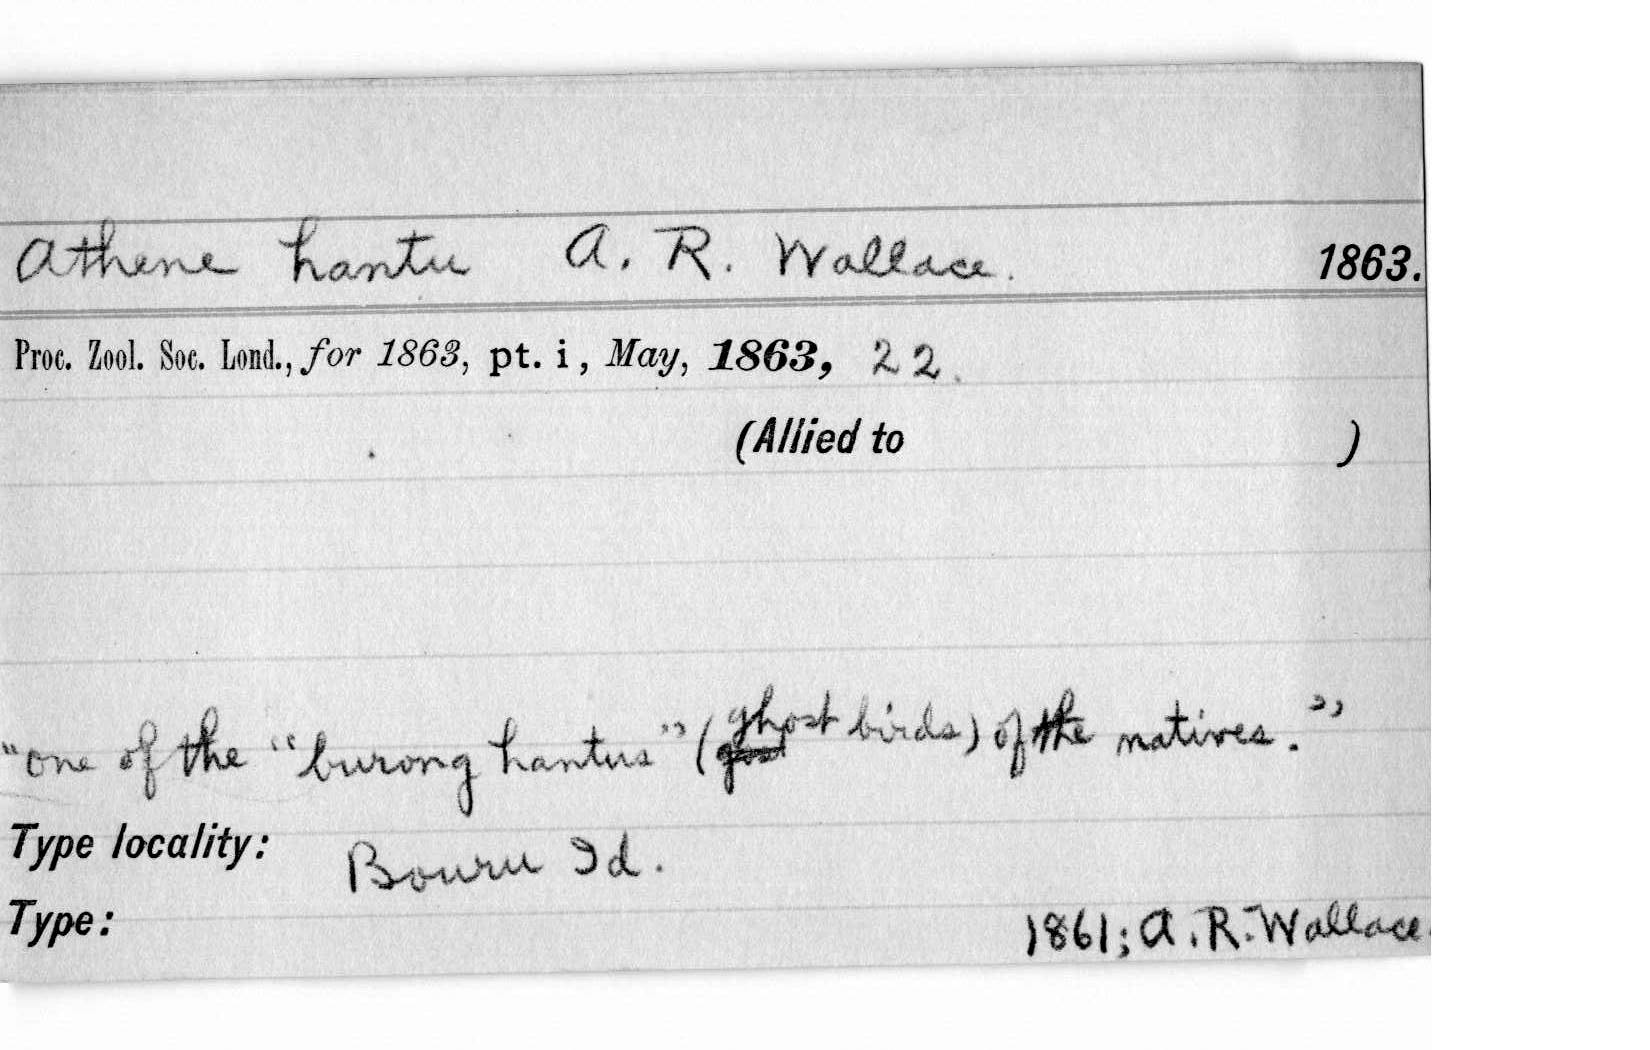 Athene hantu A. R. Wallace. 1863.
Proc. Zool. Soc. Lond., for 1863, pt. i, May, 1863, 22.
(Allied to )
"one of the "burong hantus" (ghost birds) of the natives.""
Type locality: Bouru Id.
Type: 1861; A. R. Wallace.